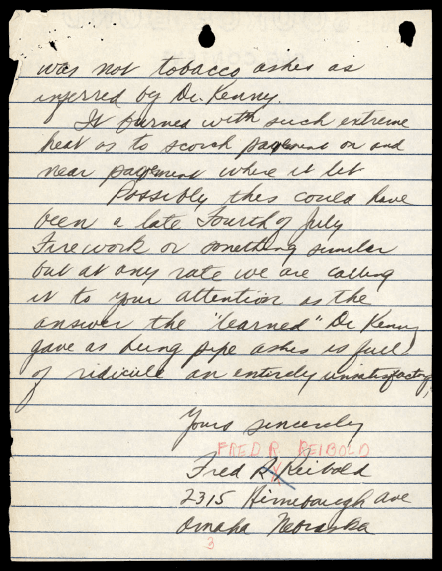 was not tobacco ashes as
inferred by Dr. Kenny.
It burned with such extreme
heat as to scorch pavement on and
near pavement where it lit
Possibly this could have
been a late Fourth of July
Firework or something similar
but at any rate we are calling
it to your attention as the
answer the "learned" Dr Kenny
gave as being pipe ashes is full
of ridicule an entirely unsatisfactory,
Yours sincerely
FRED R. REIBOLD
Fred R. Reibold
2315 Ave
Omaha Nebraska
3